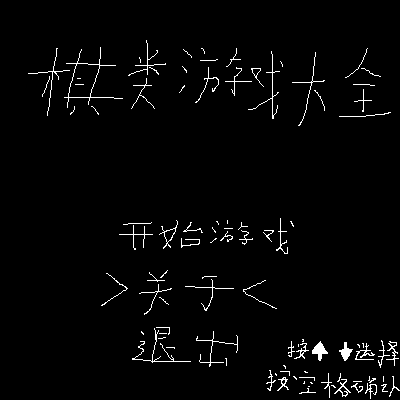 棋类游戏大全
开始游戏
>关于<
退出
按↑↓选择
按空格确认